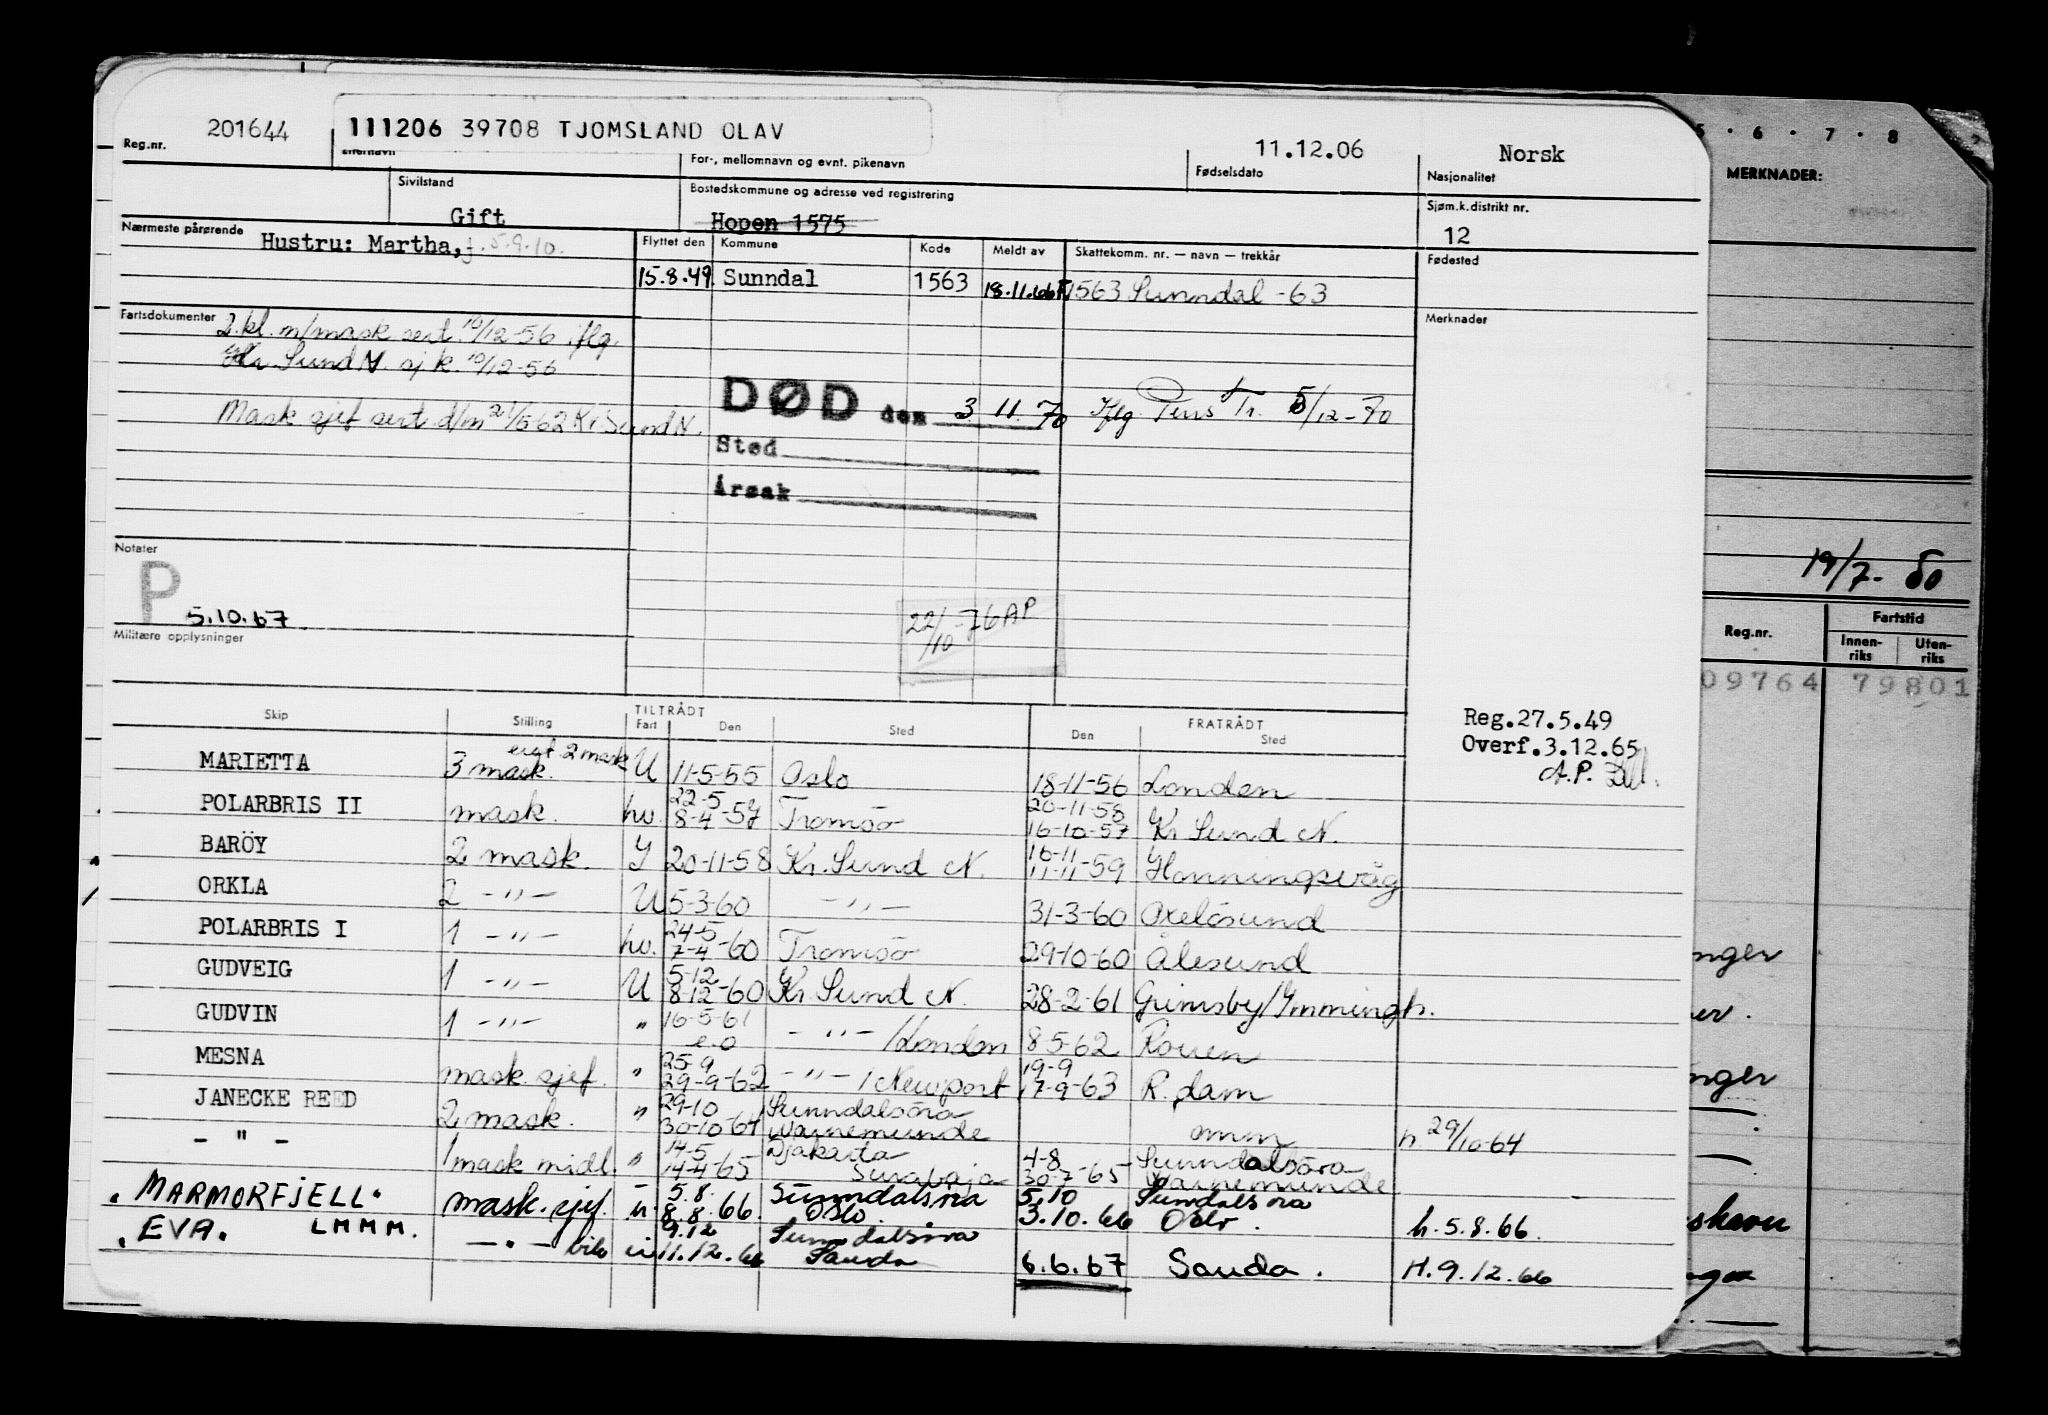 201644 111206 39708 TJOMSLAND OLAV 11.12.06 Norsk
Reg.nr. Etternavn For-, mellomnavn og evnt. pikenavn Fødselsdato Nasjonalitet
Sivilstand Bostedskommune og adresse ved registrering Sjøm.k.distrikt nr.
Gift Hopen 1575 12
Nærmeste pårørende Hustru: Martha, f. 5.9.10. Flyttet den Kommune Kode Meldt av Skattekomm. nr. — navn — trekkår Fødested
15.8.49 Sunndal 1563 18.11.66 1563 Sunndal -63
Fartsdokumenter Merknader
2.kl. m/mask sert. 10/12-56 iflg.
Kr. Sund N. sj k. 10/12-56
Mask sjef sert d/m 21/5 62 Kr Sund N.
DØD den 3. 11. 70 Iflg. Pens Tr. 5/12-70
Sted
Årsak
Notater
P 5.10.67
22/10-76 AP
Militære opplysninger
TILTRÅDT FRATRÅDT
Skip Stilling Fart Den Sted Den Sted
Reg.27.5.49
Overf.3.12.65
A.P.
MARIETTA 3 mask. 2 mask U 11-5-55 Oslo 18-11-56 London
POLARBRIS II mask. hv. 22-5 8-4-57 Tromsö 20-11-58 16-10-57 Kr Sund N.
BARÖY 2 mask. I 20-11-58 Kr. Sund N. 16-11 11-11-59 Honningsvåg
ORKLA 2 -"- U 5-3-60 -"- 31-3-60 Oxelösund
POLARBRIS I 1 -"- hv. 24-5 7-4-60 Tromsö 29-10-60 Ålesund
GUDVEIG 1 -"- U 5-12 8-12-60 Kr Sund N. 28-2-61 Grimsby/Immingh.
GUDVIN 1 -"- " 16-5-61 e.o -"- /London 8-5-62 Rouen
MESNA mask. sjef. " 25-9 29-9-62 -"- /Newport 19-9 17-9-63 R.dam
JANECKE REED 2 mask. " 29-10 30-10-64 Sunndalsöra Warnemunde mm h. 29/10-64
- " - 1 mask midl. " 14-5 14-4-65 Djakarta Surabaja 4-8 30-7-65 Sunndalsöra Warnemunde
"MARMORFJELL" mask. sjef. u 5.8. 8.8.66. Sunndalsöra Oslo 5.10 3.10.66 Sundalsöra Oslo. h. 5.8.66.
"EVA. LMMM. -"- u 9.12 11.12.66 Sunndalsöra Sauda 6.6.67 Sauda. H. 9.12.66
5 . 6 . 7 . 8
MERKNADER:
19/7-50
Reg.nr. Fartstid
Innen-riks Uten-riks
09764 79801
nger
er.
nger